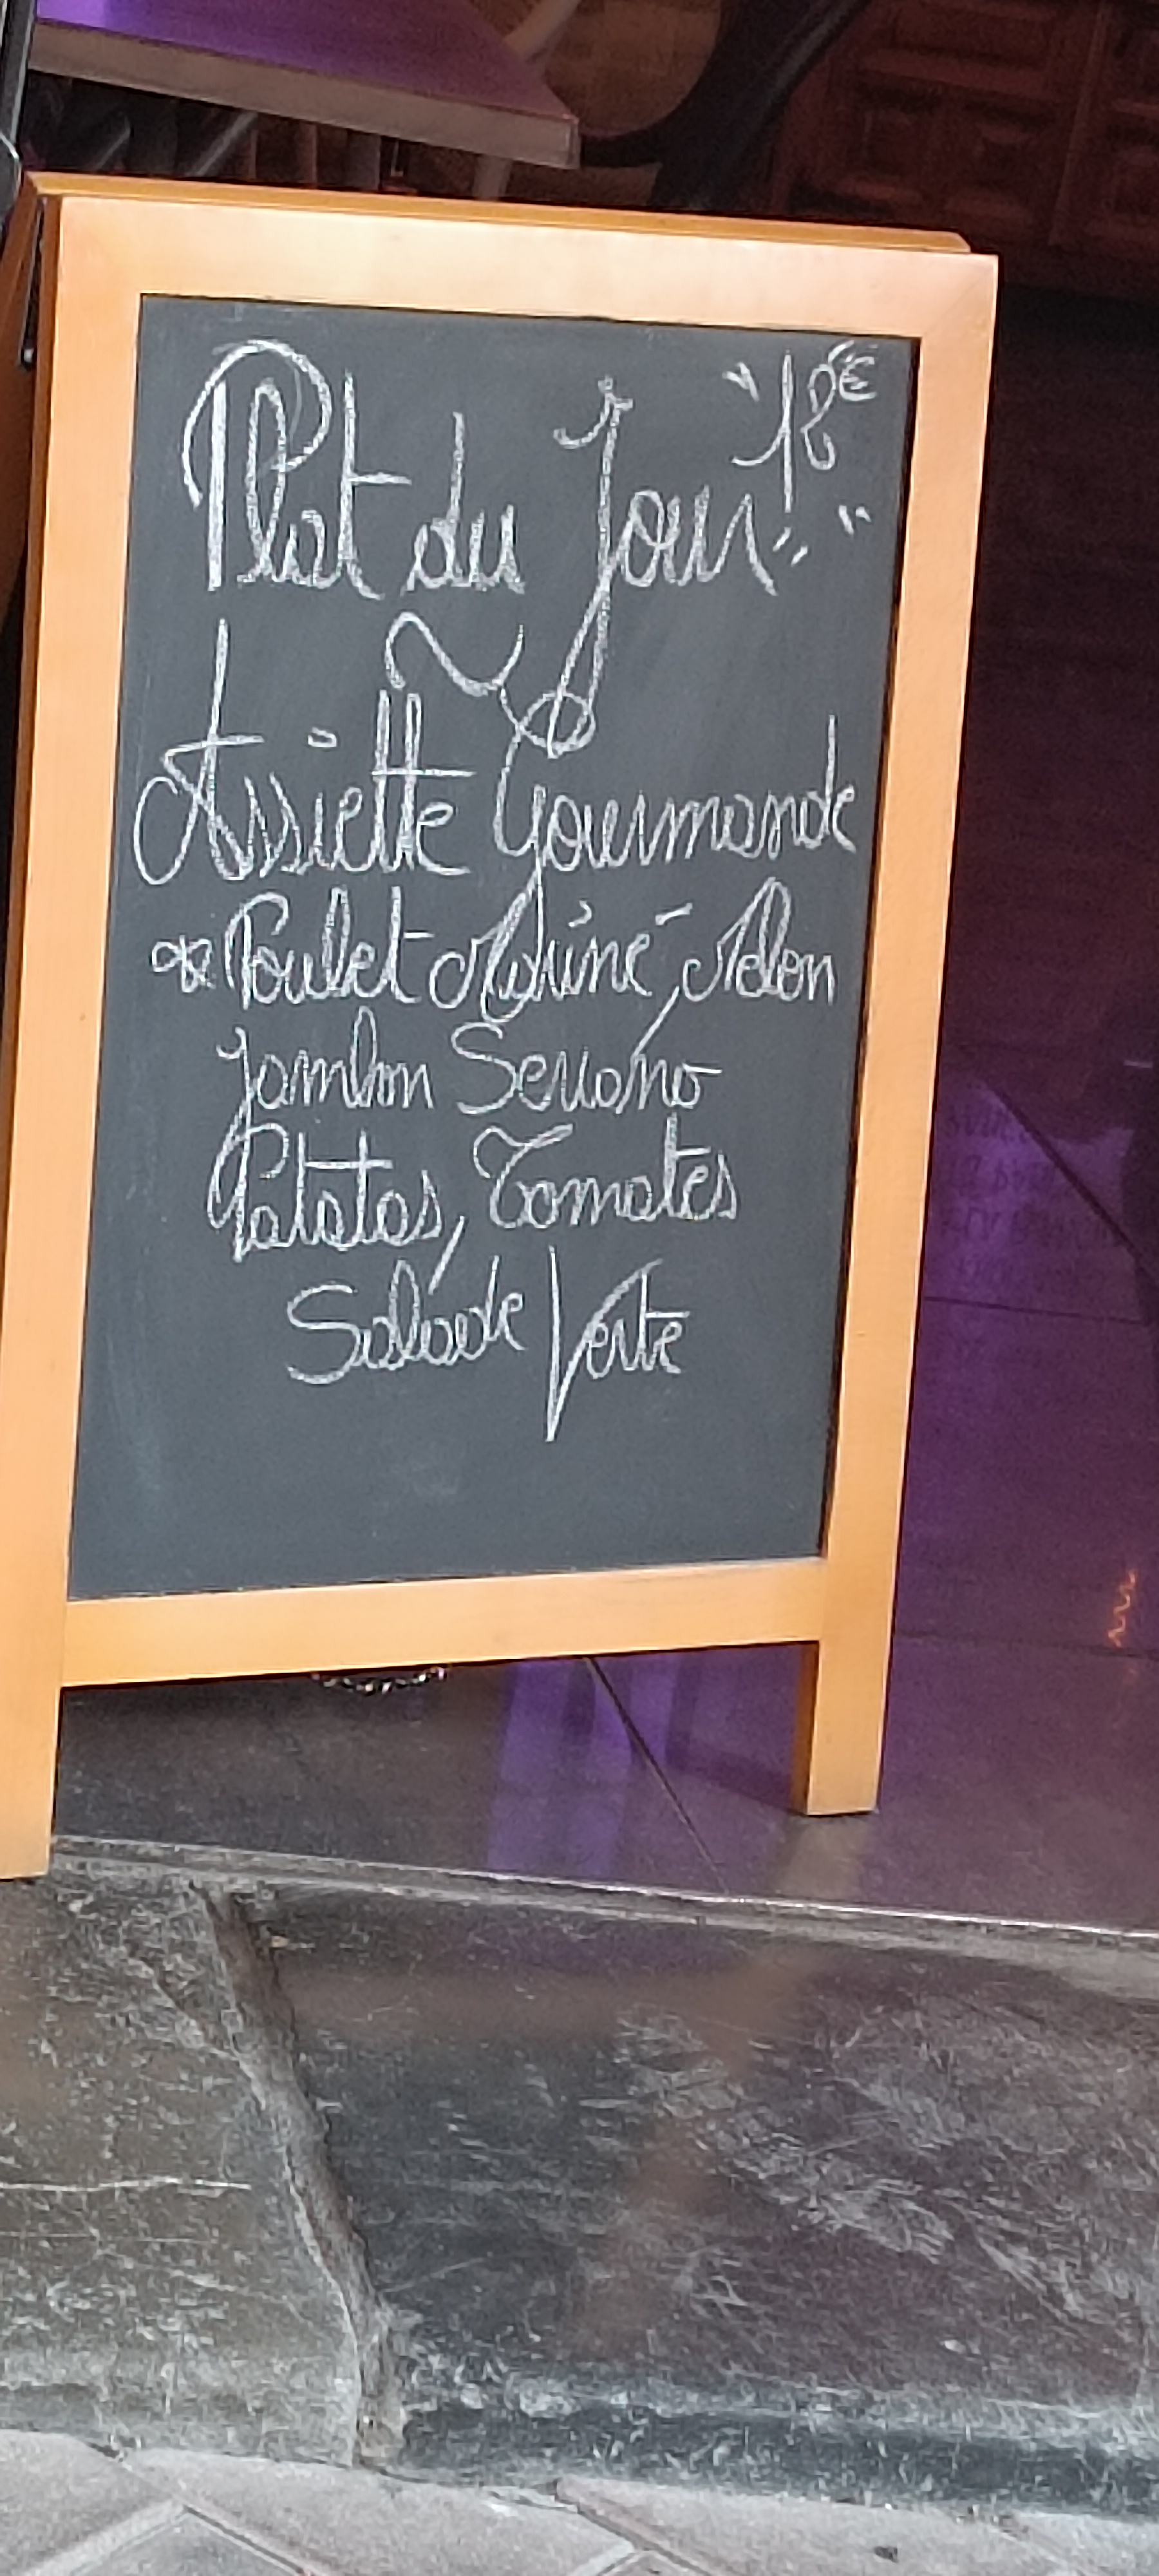 Plat du Jour "18€"
Assiette Gourmande
Poulet Mariné, Melon
Jambon Serrano
Patatas, Tomates
Salade Verte